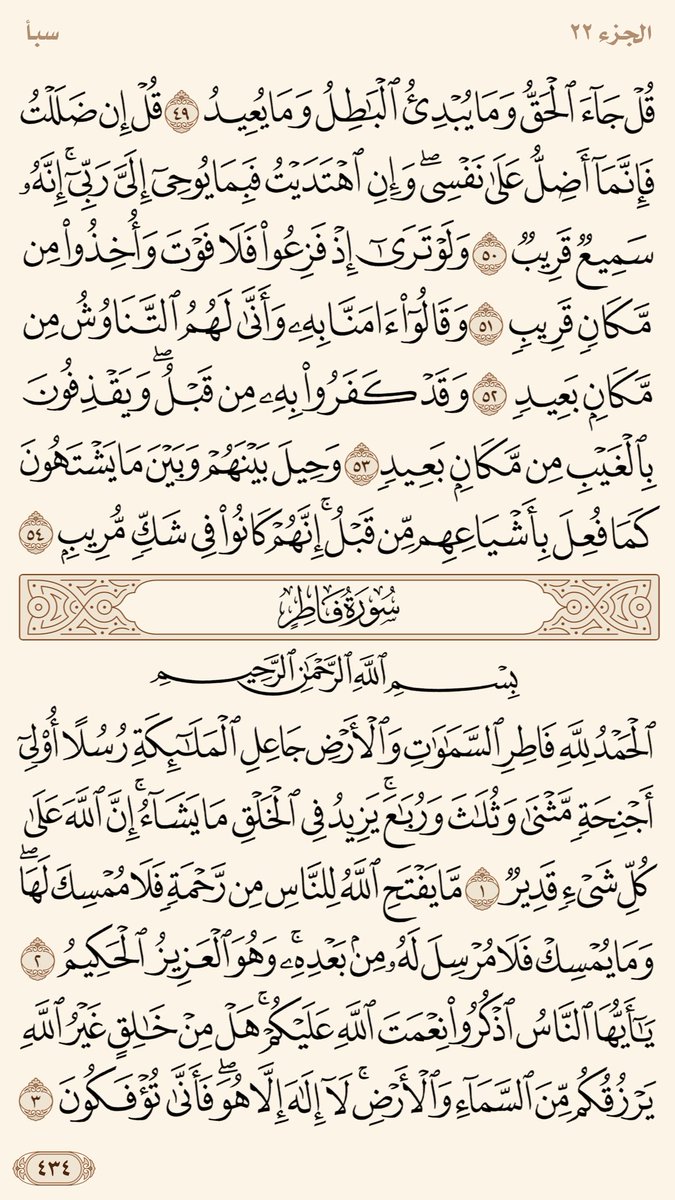 الجزء ٢٢
سبأ
قُلۡ جَآءَ ٱلۡحَقُّ وَمَا يُبۡدِئُ ٱلۡبَٰطِلُ وَمَا يُعِيدُ ٤٩ قُلۡ إِن ضَلَلۡتُ
فَإِنَّمَآ أَضِلُّ عَلَىٰ نَفۡسِيۖ وَإِنِ ٱهۡتَدَيۡتُ فَبِمَا يُوحِيٓ إِلَيَّ رَبِّيٓۚ إِنَّهُۥ
سَمِيعٞ قَرِيبٞ ٥٠ وَلَوۡ تَرَىٰٓ إِذۡ فَزِعُواْ فَلَا فَوۡتَ وَأُخِذُواْ مِن
مَّكَانٖ قَرِيبٖ ٥١ وَقَالُوٓاْ ءَامَنَّا بِهِۦ وَأَنَّىٰ لَهُمُ ٱلتَّنَاوُشُ مِن
مَّكَانِۭ بَعِيدٖ ٥٢ وَقَدۡ كَفَرُواْ بِهِۦ مِن قَبۡلُۖ وَيَقۡذِفُونَ
بِٱلۡغَيۡبِ مِن مَّكَانِۭ بَعِيدٖ ٥٣ وَحِيلَ بَيۡنَهُمۡ وَبَيۡنَ مَا يَشۡتَهُونَ
كَمَا فُعِلَ بِأَشۡيَاعِهِم مِّن قَبۡلُۚ إِنَّهُمۡ كَانُواْ فِي شَكّٖ مُّرِيبِۭ ٥٤
سُورَةُ فَاطِرٍ
بِسۡمِ ٱللَّهِ ٱلرَّحۡمَٰنِ ٱلرَّحِيمِ
ٱلۡحَمۡدُ لِلَّهِ فَاطِرِ ٱلسَّمَٰوَٰتِ وَٱلۡأَرۡضِ جَاعِلِ ٱلۡمَلَٰٓئِكَةِ رُسُلًا أُوْلِيٓ
أَجۡنِحَةٖ مَّثۡنَىٰ وَثُلَٰثَ وَرُبَٰعَۚ يَزِيدُ فِي ٱلۡخَلۡقِ مَا يَشَآءُۚ إِنَّ ٱللَّهَ عَلَىٰ
كُلِّ شَيۡءٖ قَدِيرٞ ١ مَّا يَفۡتَحِ ٱللَّهُ لِلنَّاسِ مِن رَّحۡمَةٖ فَلَا مُمۡسِكَ لَهَاۖ
وَمَا يُمۡسِكۡ فَلَا مُرۡسِلَ لَهُۥ مِنۢ بَعۡدِهِۦۚ وَهُوَ ٱلۡعَزِيزُ ٱلۡحَكِيمُ ٢
يَٰٓأَيُّهَا ٱلنَّاسُ ٱذۡكُرُواْ نِعۡمَتَ ٱللَّهِ عَلَيۡكُمۡۚ هَلۡ مِنۡ خَٰلِقٍ غَيۡرُ ٱللَّهِ
يَرۡزُقُكُم مِّنَ ٱلسَّمَآءِ وَٱلۡأَرۡضِۚ لَآ إِلَٰهَ إِلَّا هُوَۖ فَأَنَّىٰ تُؤۡفَكُونَ ٣
٤٣٤